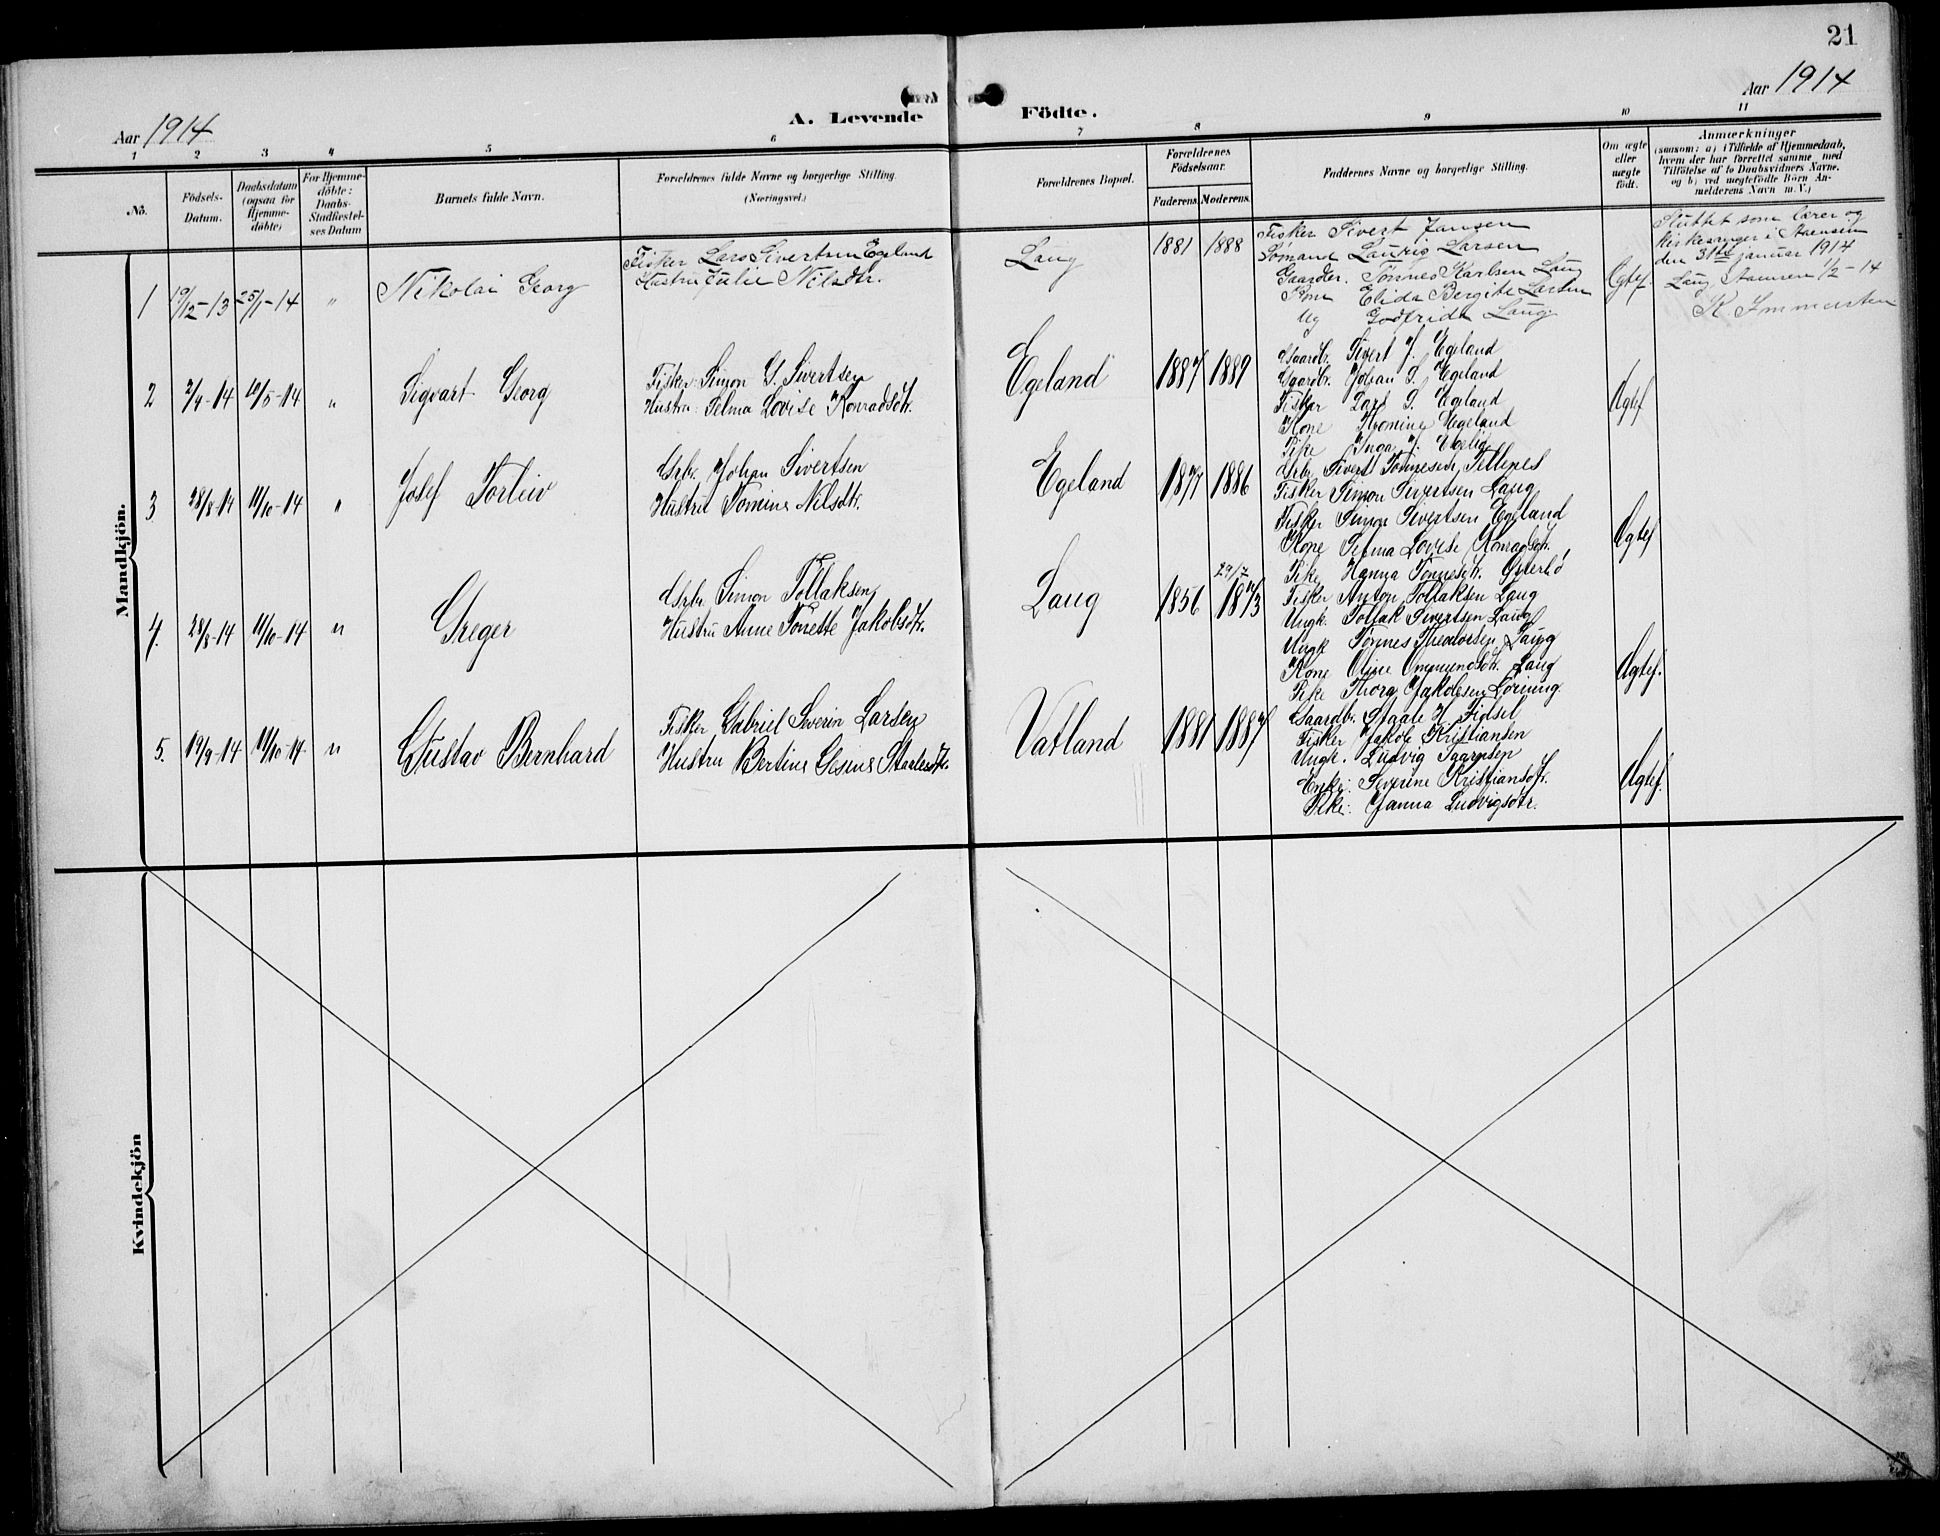 21
Aar 1914
Aar 1914
A. Levende Födte.
1 2 3 4 5 6 7 8 9 10 11
No.
Födsels-
Datum.
Daabsdatum
(ogsaa for
Hjemme-
döbte)
For Hjemme-
döbte:
Daabs-
Stadfæstel-
ses Datum
Barnets fulde Navn.
Forældrenes fulde Navne og borgerlige Stilling.
(Næringsvei.)
Forældrenes Bopæl.
Forældrenes
Födselsaar.
Faderens. Moderens.
Faddernes Navne og borgerlige Stilling.
Om ægte
eller
uægte
födt.
Anmærkninger
(saasom: a) i Tilfælde af Hjemmedaab,
hvem der har forrettet samme, med
Tilföielse af to Daabsvidners Navne,
og b) ved uægtefödte Börn An-
melderens Navn m. V.)
Mandkjön.
1 19/12-13 25/1-14 " Nikolai Georg
Fisker Lars Sivertsen Egeland
Hustru Julie Nilsdtr.
Laug 1881 1888
Fisker Sivert Jansen
Sømand Lauris Larsen
Gaardbr. Tønnes Karlsen Laug
Kone Elida Bergite Larsen
Ug Godfrida Laug
Egtef.
Sluttet som lærer og
kirkesanger i Aaensen
den 31te januar 1914
Laug, Aaensen 1/2-14
K.
2 2/4-14 10/5-14 " Sigvart Georg
Fisker Simon G. Sivertsen
Hustru Selma Lovise Konradsdtr.
Egeland 1887 1889
Gaardbr. Sivert J. Egeland
Gaardbr. Johan S. Egeland
Fisker Lars S. Egeland
Kone Tromine Egeland
Pike Inga J.
Ægtef
3 28/8-14 11/10-14 " Josef Torleiv
Grbr. Johan Sivertsen
Hustru Tomine Nilsdtr.
Egeland 1877 1886
Grbr. Sivert Tønnesen, Tellenes
Fisker Simon Sivertsen Laug
Fisker Simon Sivertsen Egeland
Kone Selma Lovise Konradsdtr.
Pike Hanna Tønnesdtr. Østerbø
Ægtef
4. 28/8-14 11/10-14 " Greger
Grbr. Simon Tollaksen
Hustru Anne Tonette Jakobsdtr.
Laug 1856 29/7 1873
Fisker Anton Tollaksen Laug
Ungk. Tollak Sivertsen Laug
Ungk Tønnes Theodorsen Laug
Kone Oline Ommundsdtr. Laug
Pike Thora Jakobsen
Ægtef.
5. 19/9-14 11/10-14 " Gustav Bernhard
Fisker Gabriel Severin Larsen
Hustru Bertine Gesine Staalesdtr.
Vatland 1881 1887
Gaardbr. Staale H. Fidsel
Fisker Jakob Kristiansen
Ungk. Ludvig Taarnsen
Enke: Severine Kristiansdtr.
Pike: Janna Ludvigsdtr.
Ægtef.
Kvindekjön